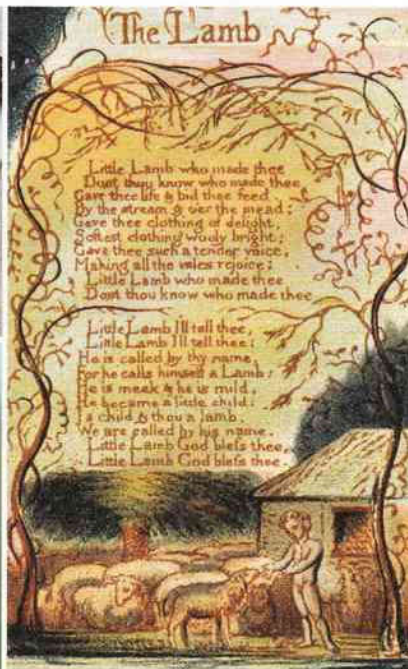 The Lamb
Little Lamb who made thee
Dost thou know who made thee
Gave thee life & bid thee feed
By the stream & o'er the mead;
Gave thee clothing of delight,
Softest clothing wooly bright;
Gave thee such a tender voice,
Making all the vales rejoice;
Little Lamb who made thee
Dost thou know who made thee
Little Lamb I'll tell thee,
Little Lamb I'll tell thee;
He is called by thy name,
For he calls himself a Lamb:
He is meek & he is mild,
He became a little child:
I a child & thou a lamb,
We are called by his name.
Little Lamb God bless thee,
Little Lamb God bless thee.